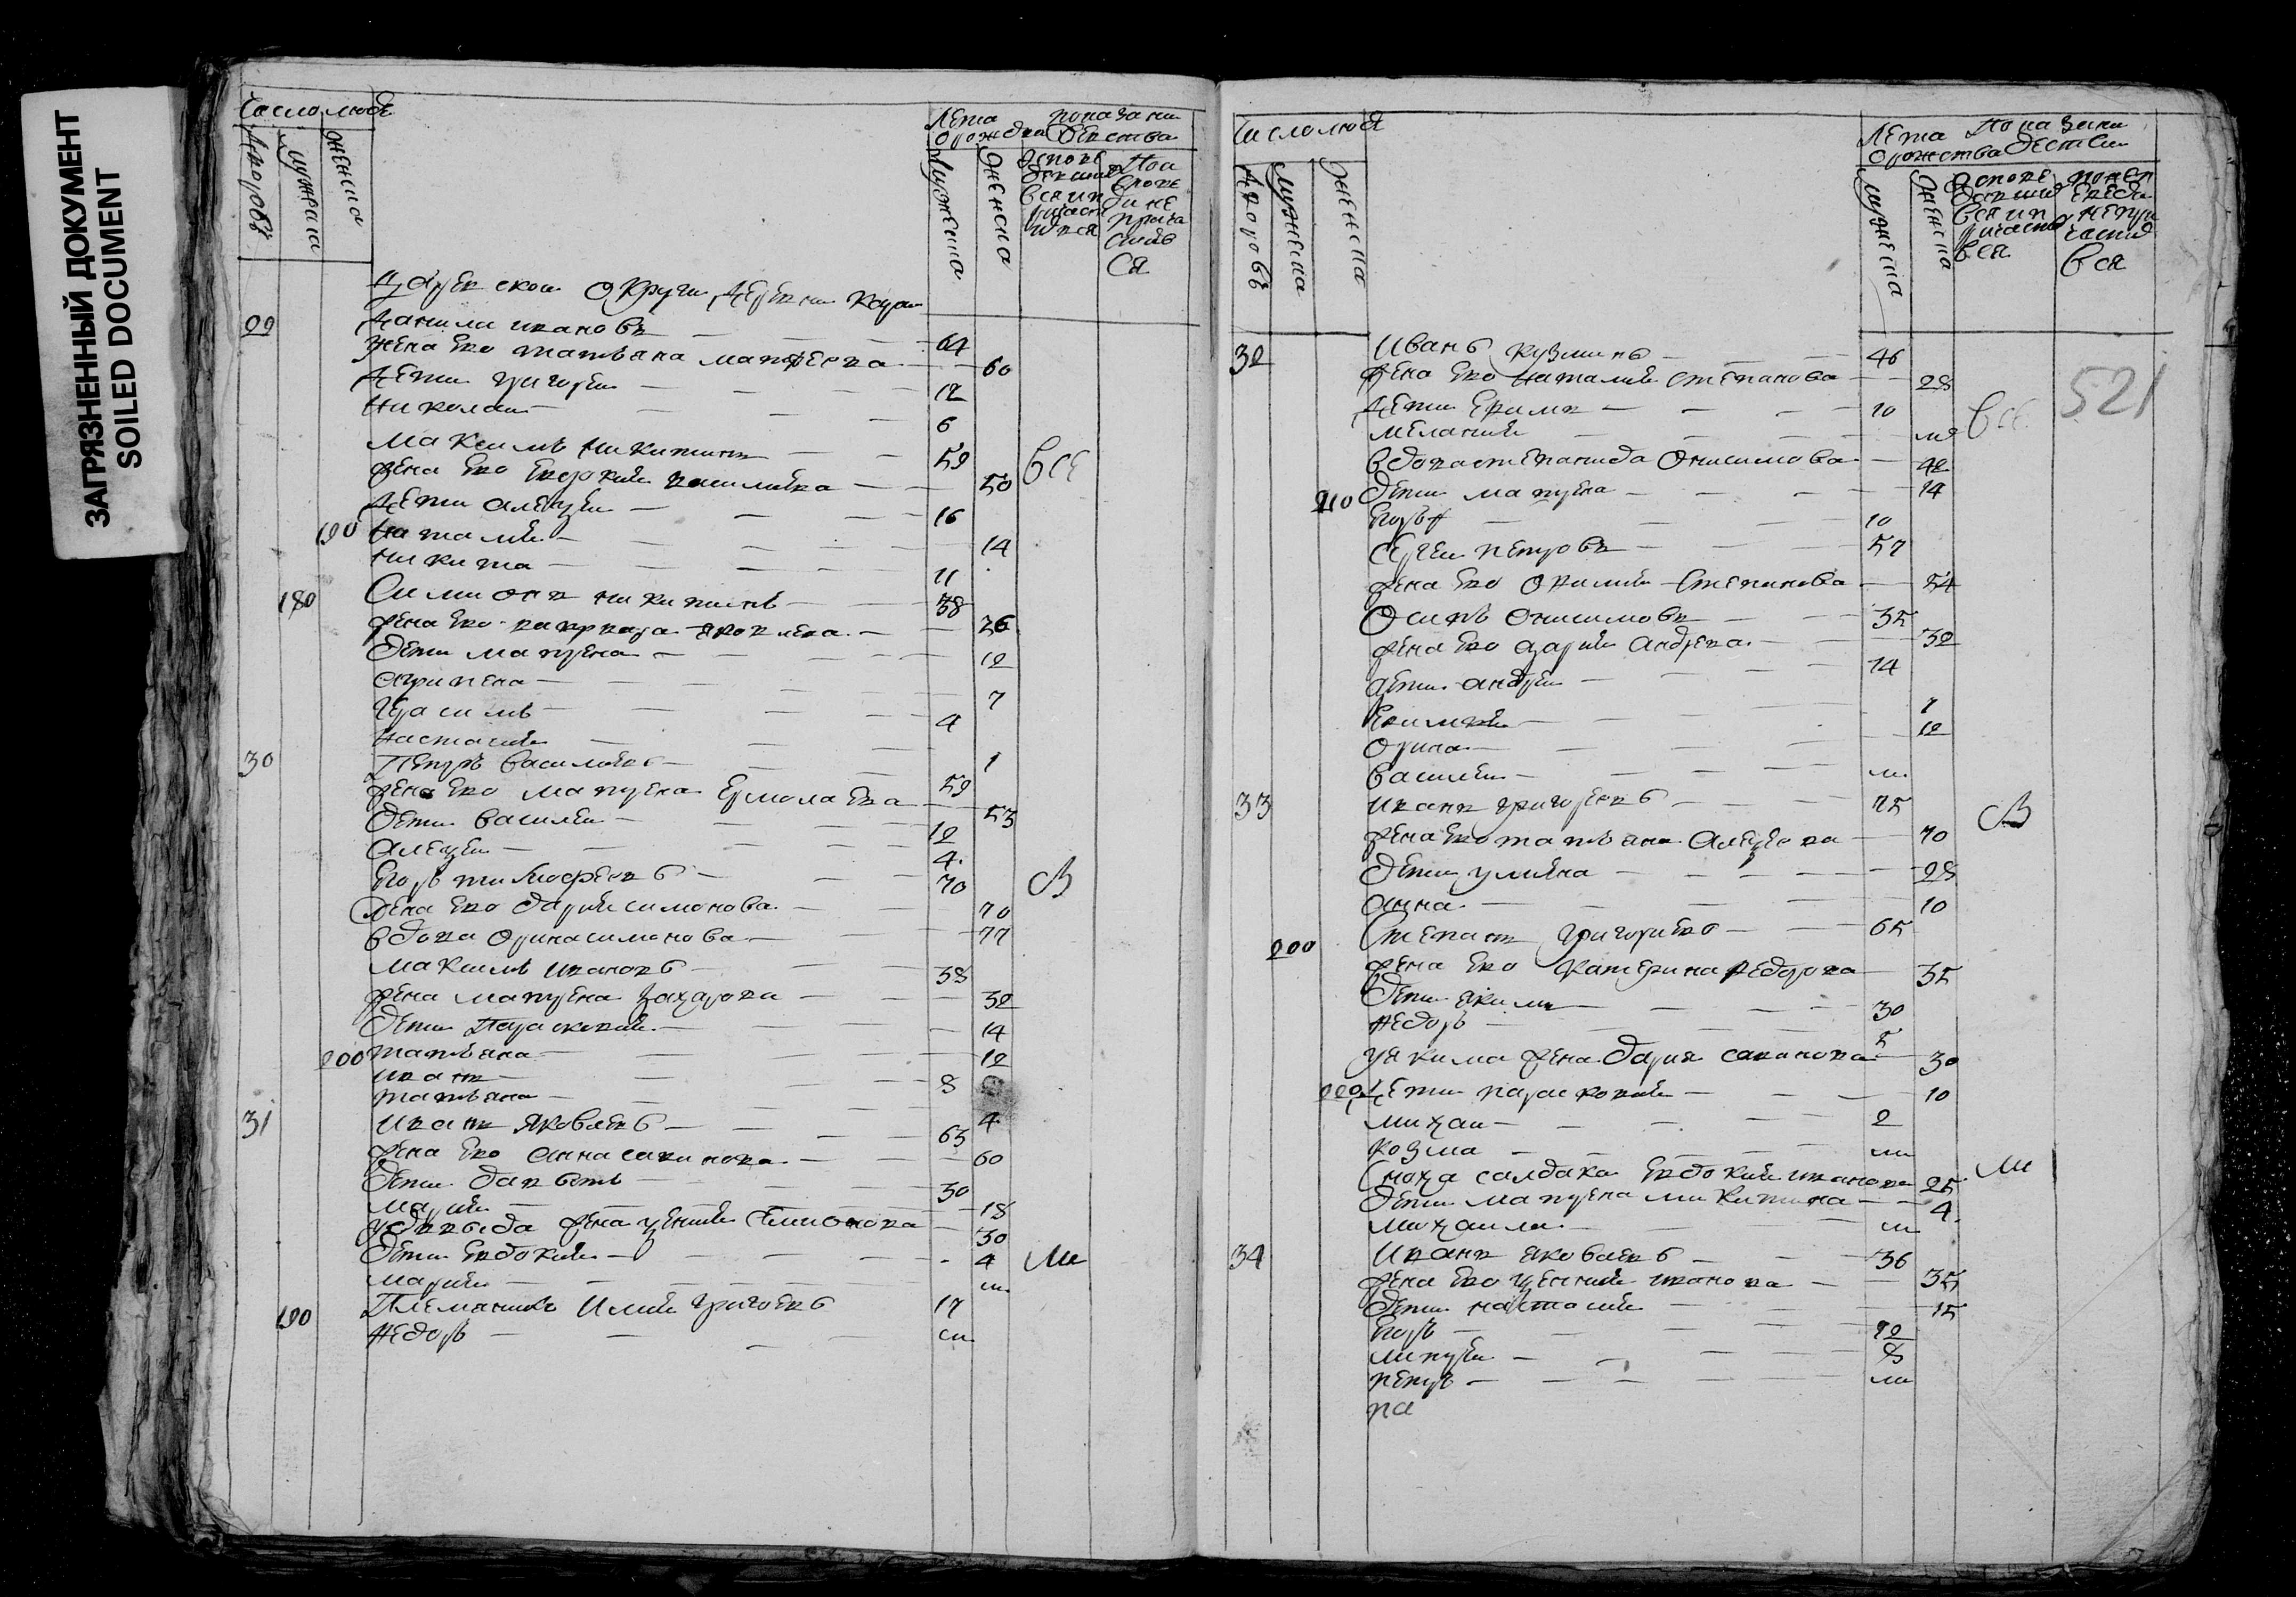 ЗАГРЯЗНЕННЫЙ ДОКУМЕНТ
SOILED DOCUMENT
Число люде
Дворовъ
мужеска
женска
Лета
орожде
показани
бытства
мужеска
женска
округи деревни
29 Данила ивановъ — 64
жена ево татьяна матфеева — 60
дети григореи — 12
николаи — 6
максимъ никитинъ — 59 все
жена ево евдокия василиева — 50
дети алексеи — 16
190 наталия — 14
никита — 11
180 симионъ никитинъ — 38
жена ево варвара яковлева — 36
дети матрена — 12
агрипена — 7
герасимъ — 4
настасия — 1
30 Петръ василиевъ — 59
жена ево матрена ермолаева — 53
дети василеи — 12
алексеи — 4
егоръ тимофеевъ — 70 В
жена ево дария симонова — 70
вдова орина симонова — 77
максимъ ивановъ — 38
жена матрена захарова — 32
дети Парасковия — 14
200 татьяна — 12
иванъ — 8
татьяна — 4
31 иванъ яковлевъ — 63
жена ево анна савинова — 60
дети давыдъ — 30
мария — 18
у давыда жена ксения симионова — 30
дети евдокия — 4 м
мария — м
190 Племяникъ Илия григоревъ — 17
федоръ — м
Число люде
Дворовъ
мужеска
женска
Лета
орожества
Показани
бытства
мужеска
женска
521
32 Иванъ кузминъ — 46
жена ево наталия степанова — 28
дети ефимъ — 10 все
мелания — м
вдова степанида онисимова — 42
210 дети матрена — 14
егоръ — 10
сергеи петровъ — 57
жена ево степанова — 54
Осипъ онисимовъ — 35
жена ево дария андреева — 32
дети андреи — 14
1
орина — 12
василеи — м
33 иванъ григоревъ — 75 В
жена ево татьяна алексеева — 70
дети улияна — 28
анна — 10
200 Степанъ григориевъ — 65
жена ево катерина федорова — 35
дети якимъ — 30
федоръ — 5
у якима жена дария савинова — 30
220 дети парасковия — 10
михаи — 2
козма — м
сноха салдака евдокия иванова 25 м
дети матрена никитина — 4
михаила — м
34 Иванъ яковлевъ — 36
жена ево ксения иванова — 35
дети настасия — 15
егоръ — 12
8
петръ — м